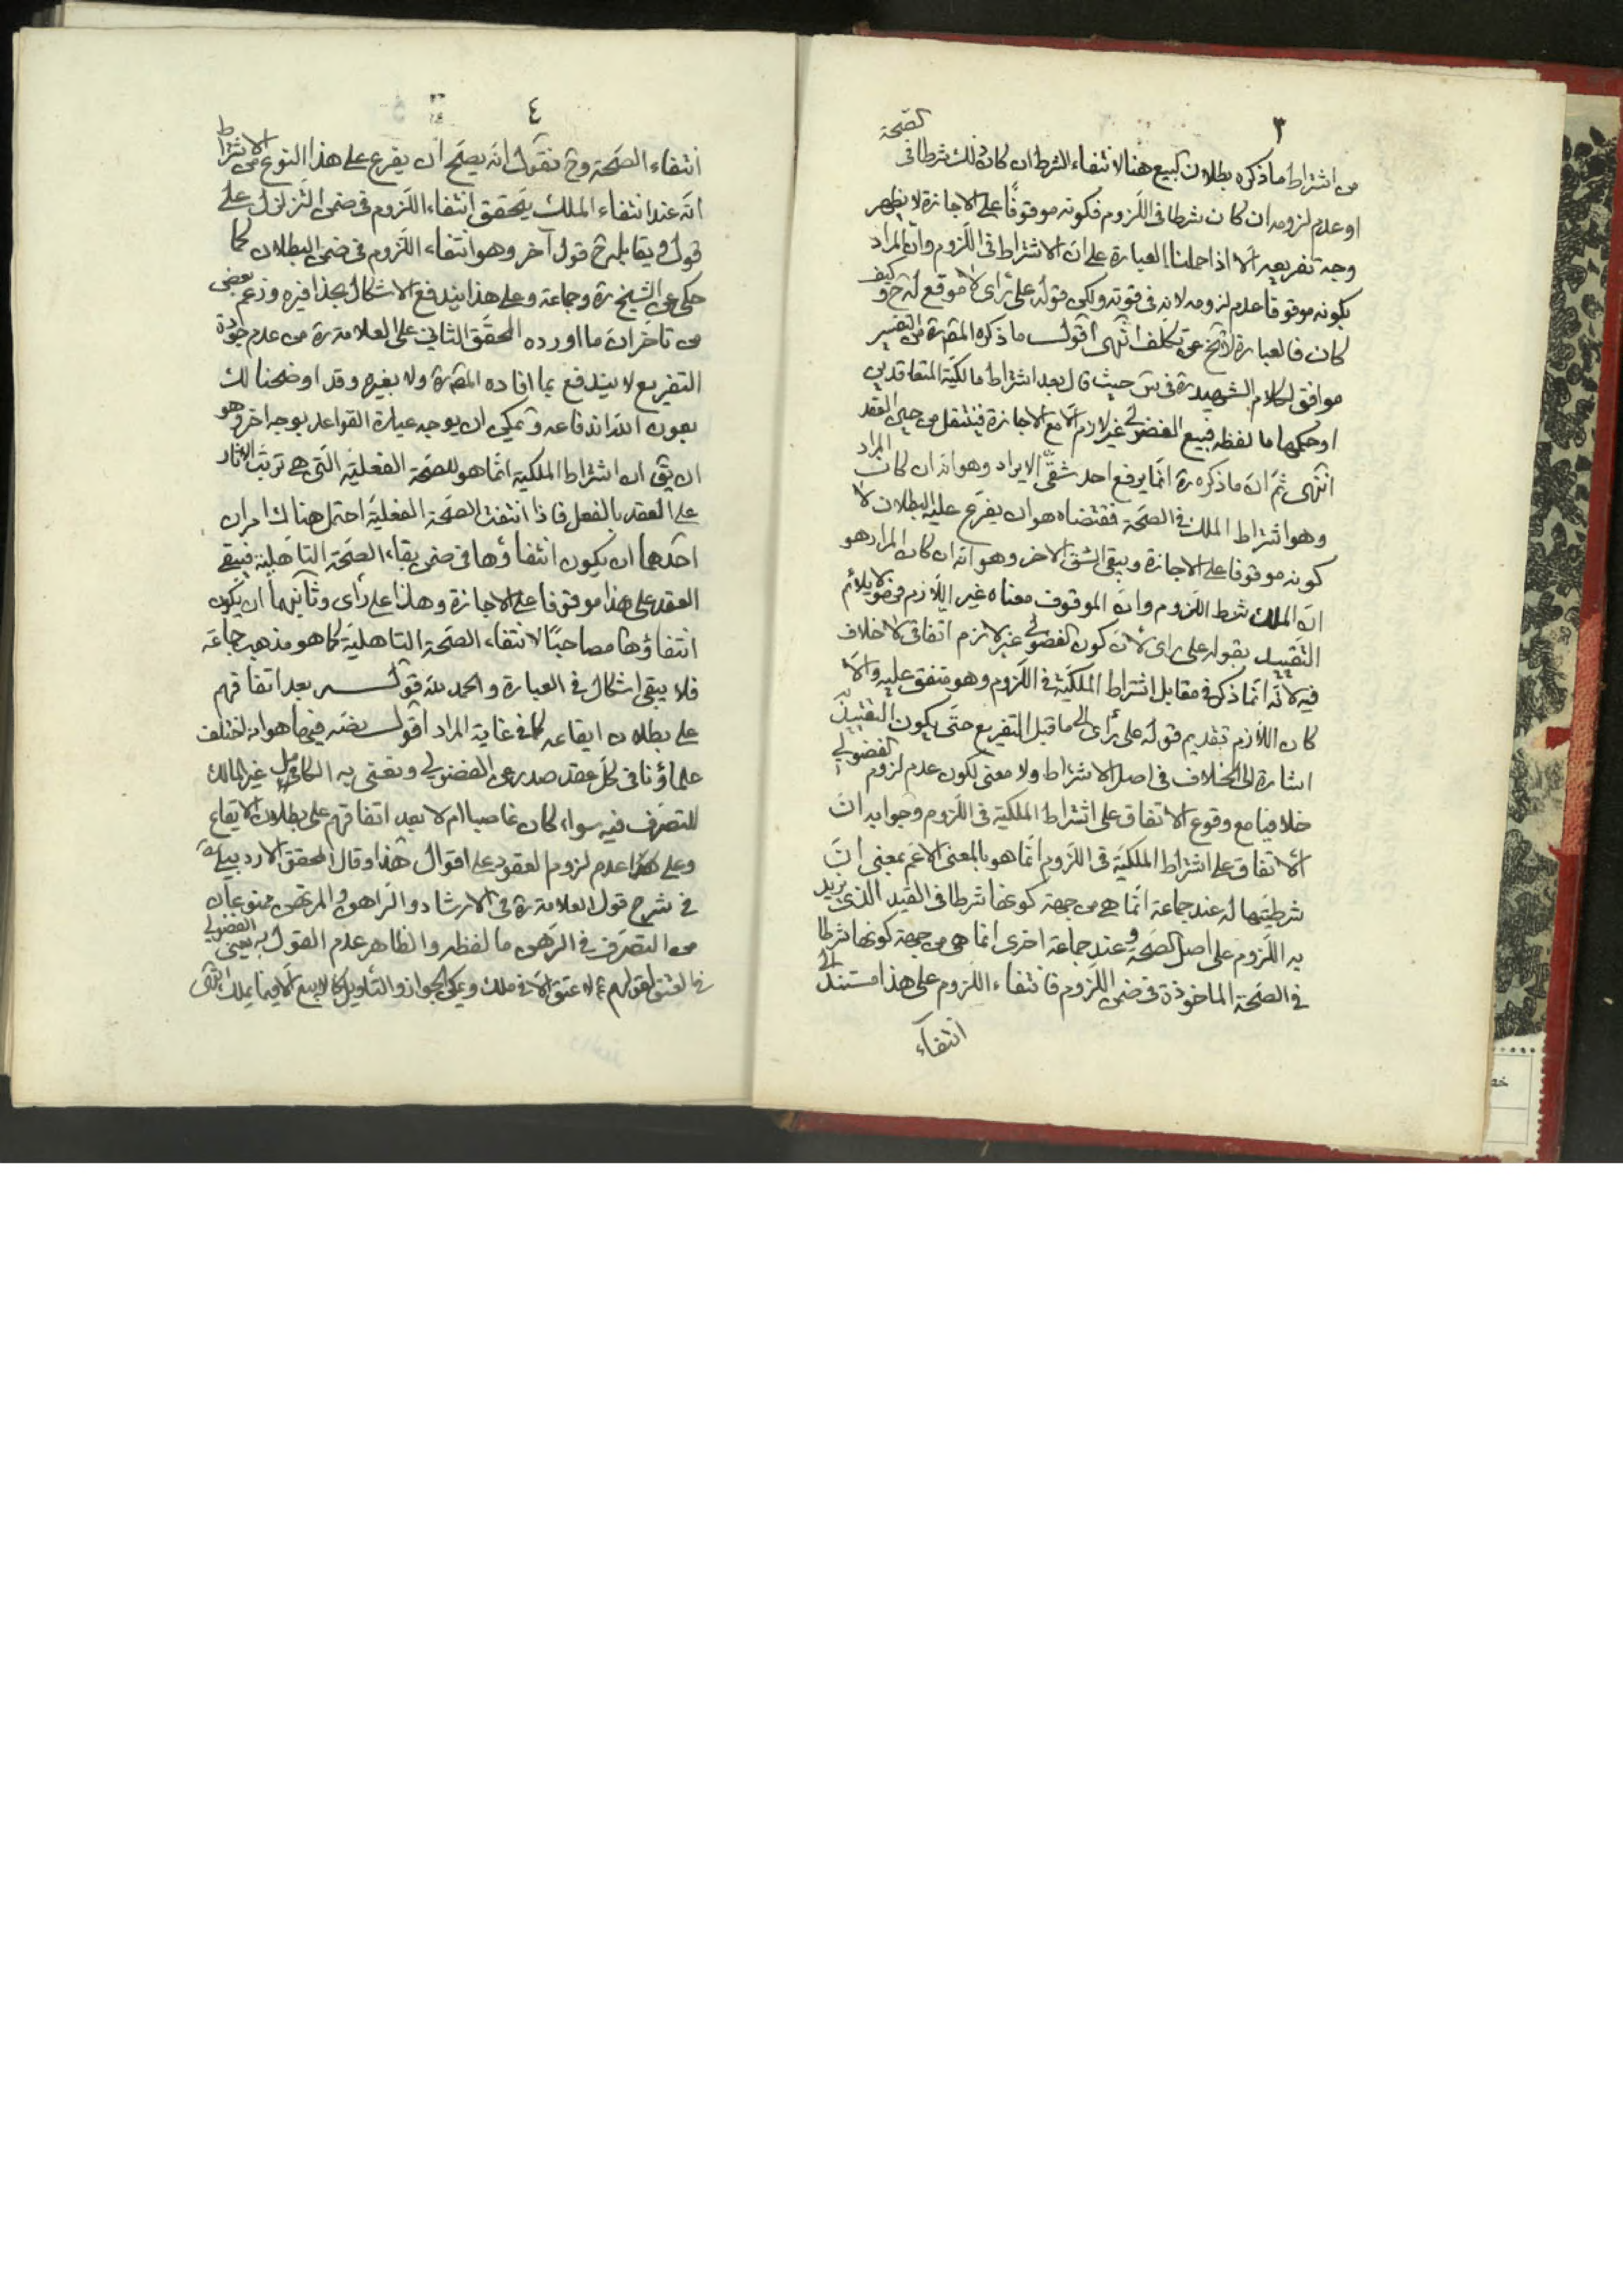 ٣
من اشتراط ما ذكره بطلان البيع هنا لانتفاء الشرط ان كان ذلك شرطا فى الصّحة
او عدم لزومه ان كان شرطا فى اللّزوم فكونه موقوفًا على الاجازة لا يظهر
وجه تفريعه الّا اذا حملنا العبارة على انّ الاشتراط فى اللّزوم وانّ المراد
بكونه موقوفا عدم لزومه لانه فى قوته ولكن قوله على رأى لا موقع له ح وكيف
كان فالعبارة لا تخ عن تكلف انتهى اقول ما ذكره المص ره من التفسير
موافق لكلام الشهيد ره فى س حيث قال بعد اشتراط مالكيّة المتعاقدين
او حكمها ما لفظه فبيع الفضولى غير لازم الّا مع الاجازة فينتقل من حين العقد
انتهى ثمّ انّ ما ذكره ره انّما يرفع احد شقّى الايراد وهو انه ان كان المراد
وهو اشتراط الملك فى الصحّة فمقتضاه هو ان يفرّع عليه البطلان لا
كونه موقوفا على الاجازة ويبقى الشق الاخر وهو انه ان كان المراد هو
انّ الملك شرط اللّزوم وانّ الموقوف معناه غير اللّازم فهو لا يلائم
التّقييد بقوله على رأى لانّ كون الفضولى غير لازم اتفاقى لا خلاف
فيه لانّه انّما ذكر فى مقابل اشتراط الملكيّة فى اللّزوم وهو متفق عليه والّا
كان اللّازم تقديم قوله على رأى الى ما قبل التفريع حتّى يكون التقييد به
اشارة الى الخلاف فى اصل الاشتراط ولا معنى لكون عدم لزوم الفضولى
خلافيا مع وقوع الاتفاق على اشتراط الملكية فى اللّزوم وجوابه انّ
الاتفاق على اشتراط الملكيّة فى اللّزوم انّما هو بالمعنى الاعم بمعنى انّ
شرطيّتها له عند جماعة انّما هى من جهة كونها شرطا فى القيد الذى يزيد
به اللّزوم على اصل الصّحة وعند جماعة اخرى انّما هى من جهة كونها شرطا
فى الصّحة الماخوذة فى ضمن اللّزوم فانتفاء اللّزوم على هذا مستند الى
انتفاء
٤
انتفاء الصّحة وح نقول انّه يصحّ ان يفرع على هذا النوع من الاشتراط
انّه عند انتفاء الملك يتحقق انتفاء اللّزوم فى ضمن التّزلزل على
قول ويقابله ح قول آخر وهو انتفاء اللّزوم فى ضمن البطلان كما
حكى عن الشيخ ره وجماعة وعلى هذا يندفع الاشكال بحذافيره وزعم بعض
من تاخّر انّ ما اورده المحقّق الثانى على العلامة ره من عدم جودة
التفريع لا يندفع بما افاده المص ره ولا بغيره وقد اوضحنا لك
بعون اللّه اندفاعه ويمكن ان يوجه عبارة القواعد بوجه اخر وهو
ان يق ان اشتراط الملكية انّما هو للصّحة الفعليّة الّتى هى ترتّب الاثار
على العقد بالفعل فاذا انتفت الصّحة الفعليّة احتمل هناك امران
احدهما ان يكون انتفاؤها فى ضمن بقاء الصّحة التاهّلية فيبقى
العقد على هذا موقوفا على الاجازة وهذا على رأى وثانيهما ان يكون
انتفاؤها مصاحبًا لانتفاء الصّحة التاهليّة كما هو مذهب جماعة
فلا يبقى اشكال فى العبارة والحمد للّه قوله بعد اتفاقهم
على بطلان ايقاعه كما فى غاية المراد اقول نصّه فيها هو انه اختلف
علماؤنا فى كلّ عقد صدر عن الفضولى ونعنى به الكامل غير المالك
للتصرّف فيه سواء كان غاصبا ام لا بعد اتفاقهم على بطلان الايقاع
وعلى عدم لزوم العقود على اقوال هذا وقال المحقق الاردبيلى ره
فى شرح قول العلامة ره فى الارشاد والرّاهن والمرتهن ممنوعان
من التصرّف فى الرّهن ما لفظه والظاهر عدم القول به يعنى الفضولى
فى العتق لقولهم ع لا عتق الّا فى ملك ويمكن الجواز والتأويل كما لا بيع الّا فيما يملك